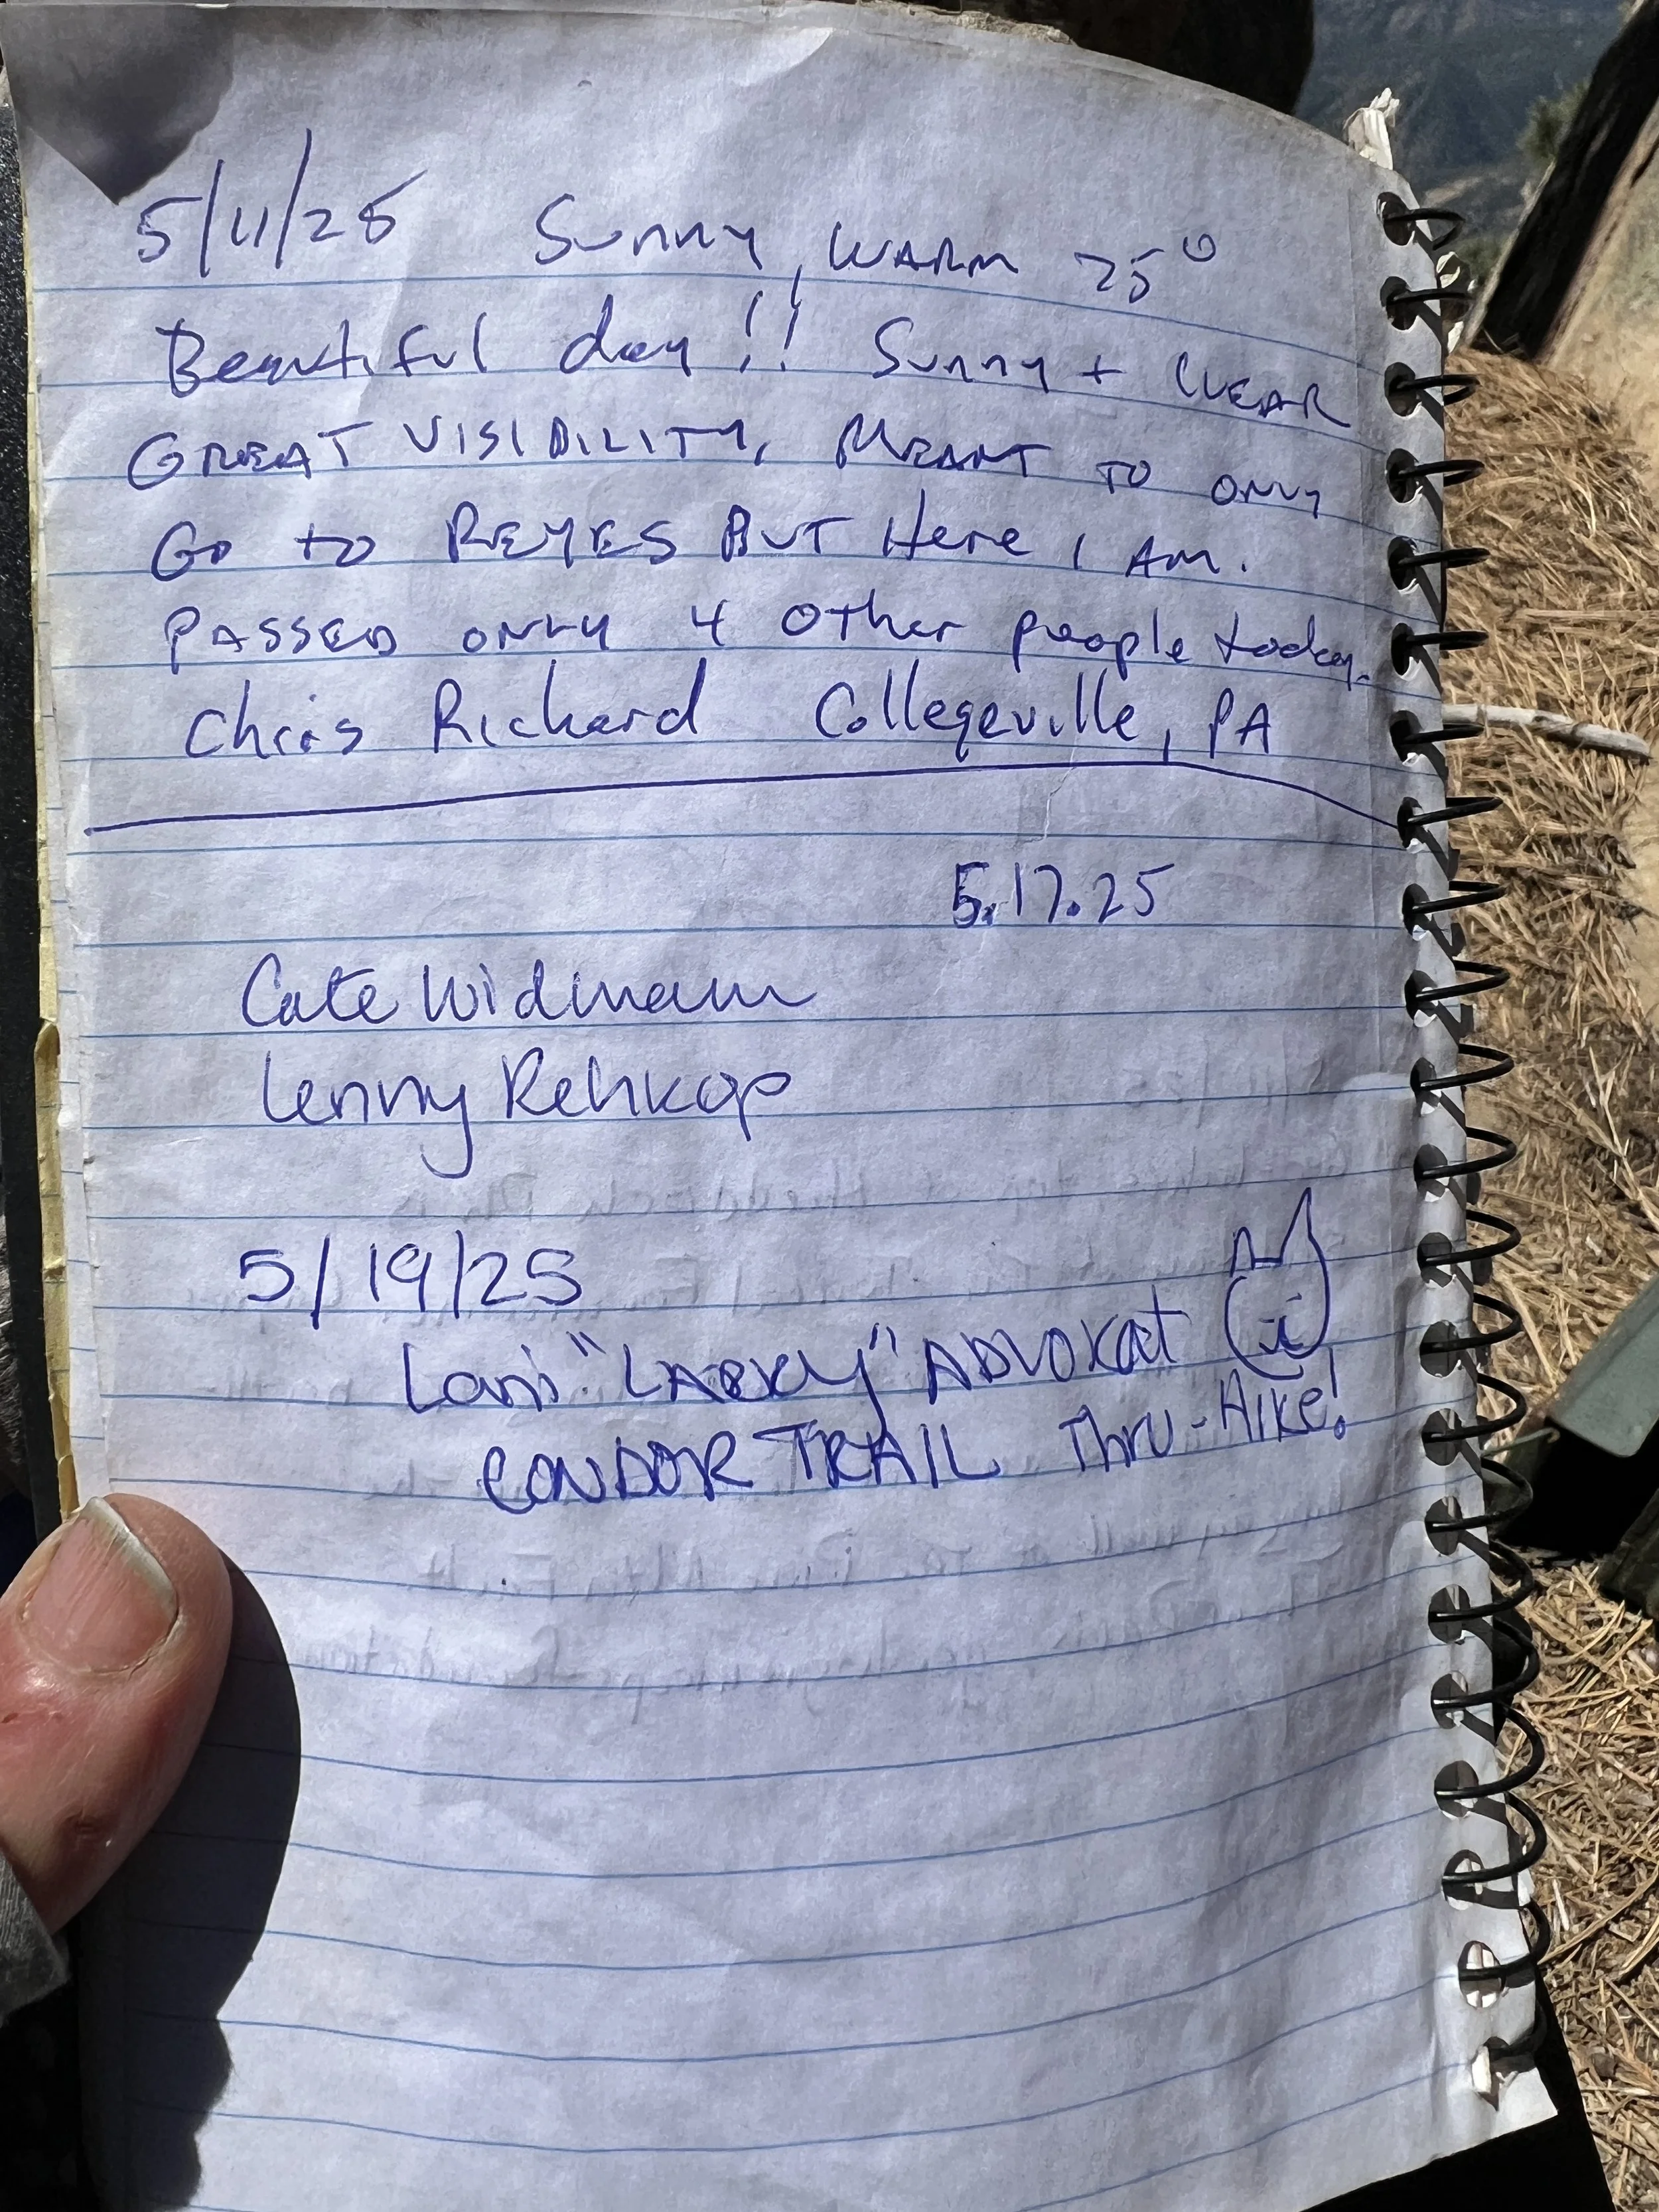 5/11/25 Sunny, WARM 75°
Beautiful day!! Sunny + CLEAR
GREAT VISIBILITY, MEANT TO ONLY
GO to REYES BUT Here I AM.
PASSED ONLY 4 other people today.
Chris Rickard Collegeville, PA
5.17.25
Cate Widmann
Lenny Rehkop
5/19/25
"LARRY" ADVOKAT
CONDOR TRAIL Thru-Hike!